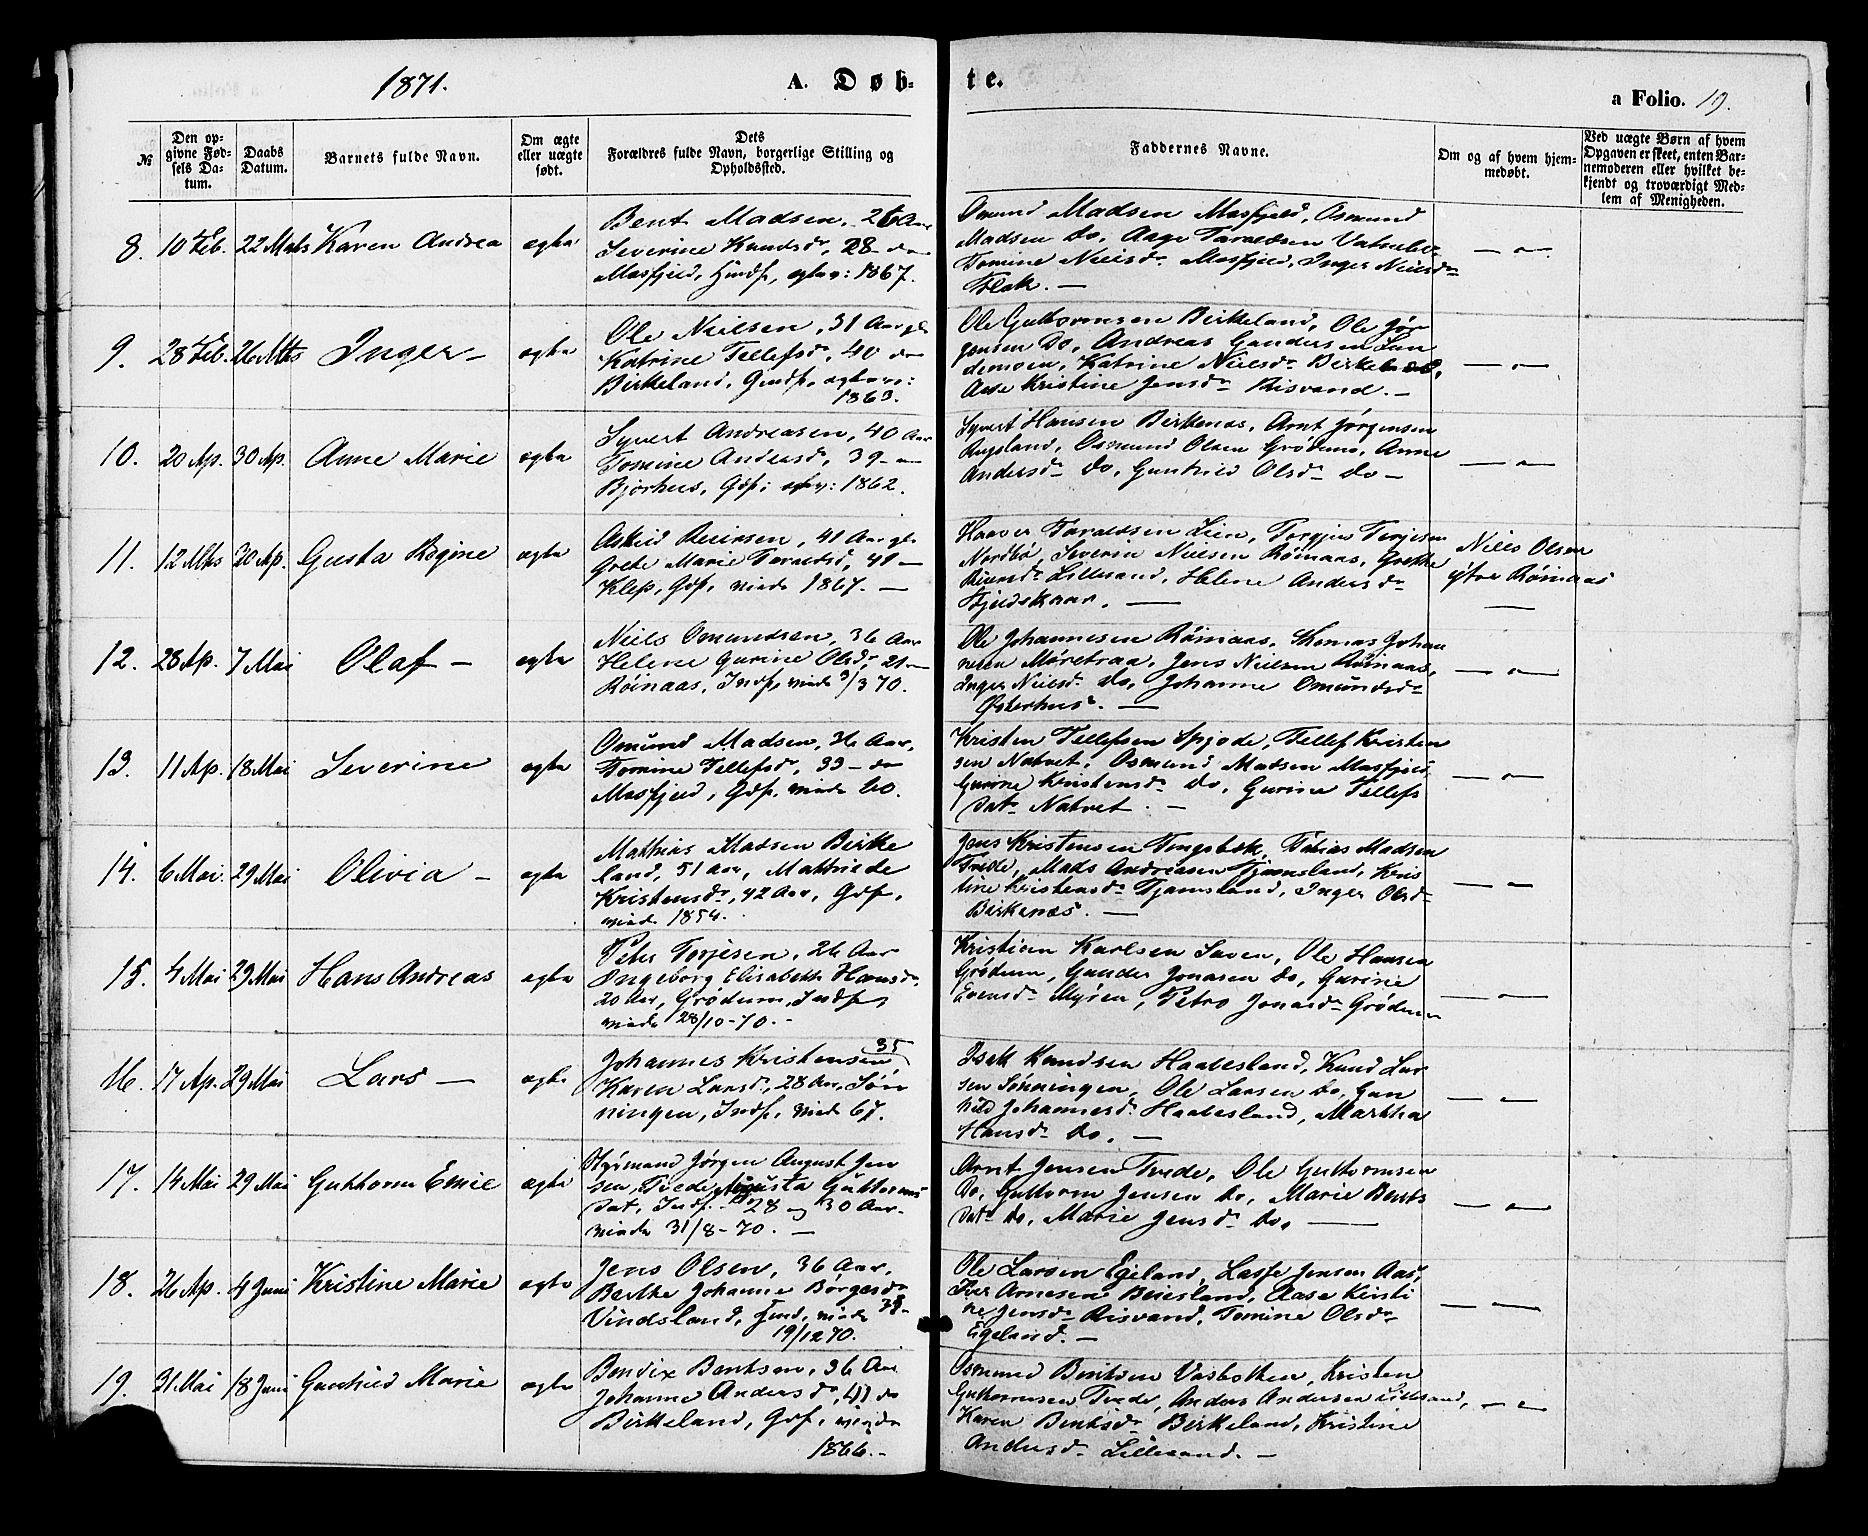 1871. A. Døb-
te.
a Folio. 19.
№
Den op-
givne Fød-
sels Da-
tum.
Daabs
Datum.
Barnets fulde Navn.
Om ægte
eller uægte
født.
Dets
Forældres fulde Navn, borgerlige Stilling og
Opholdssted.
Faddernes Navne.
Om og af hvem hjem-
medøbt.
Ved uægte Børn af hvem
Opgaven er skeet, enten Bar-
nemoderen eller hvilket be-
kjendt og troværdigt Med-
lem af Menigheden.
8. 10 Feb. 22 Mts Karen Andrea ægte
Bent Madsen, 26 Aar
Severine Knudsd., 28 do
Mosfjeld, Hmdf, 1867.
Osmund Madsen Mosfjeld, Osmund
Madsen do, Aage Taraldsen
Tomine Nielsd. Mosfjeld, Inger Nielsd.
Flak. —
— " —
9. 28 Feb. 26 Mts Inger — ægte
Ole Nielsen, 31 Aar gl.
Katrine Tellefsd., 40 do
Birkeland, Gmdf,
1863.
Ole Guttormsen Birkeland, Ole Jør-
gensen do, Andreas Gundersen
Katrine Nielsd. Birkeland,
Aase Kristine Jensd. Risvand. —
— " —
10. 20 Ap. 30 Ap. Anne Marie ægte
Syvert Andreasen, 40 Aar
Tomine Andersd., 39 —
Bjorhus, Gdf, 1862.
Syvert Hansen Birkenæs, Arnt Jørgensen
Rugsland, Osmund Olsen Grødum, Anne
Andersd. do, Gunhild Olsd. do —
— " —
11. 12 Mts 30 Ap. Gusta Regine ægte
Reiersen, 41 Aar gl.
Grete Marie Taraldsd, 41 —
Klep, Gdf, viede 1867. —
Taraldsen Lien, Torgju Terjesen
Severin Nielsen Røinaas, Grethe
Reiersd. Lillesand, Helene Andersd.
Fjeldskaar. —
Niels Olsen
Røinaas
12. 28 Ap. 7 Mai Olaf — ægte
Niels Omundsen, 36 Aar
Helene Gurine Olsd., 21 —
Røinaas, Indf, viede 3/3 70.
Ole Johannesen Røinaas, Thomas Johan-
nesen Møretraa, Jens Nielsen Røinaas,
Inger Nielsd. do, Johanne Omundsd.
Østerhus. —
— " —
13. 11 Ap. 18 Mai Severine ægte
Omund Madsen, 36 Aar,
Tomine Tellefsd., 33 — do
Mosfjeld, Gdf, viede 60.
Kristen Tellefsen Spjode, Tellef Kristen-
sen Natvet, Osmund Madsen Mosfjeld
Gurine Kristensd. do, Gurine Tellefs
dat. Natvet. —
— " —
14. 6 Mai. 29 Mai Olivia — ægte
Mathias Madsen Birke
land, 51 aar, Mathilde
Kristensd., 42 Aar, Gdf,
viede 1854.
Jens Kristensen Tingsbæk, Tobias Madsen
Tvede, Mads Andreasen Tjamsland, Kris
tine Kristensd. Tjamsland, Inger Olsd.
Birkenæs. —
— " —
15. 4 Mai 29 Mai Hans Andreas ægte
Peter Torjesen, 26 Aar
Ingeborg Elisabeth Hansd.
20 Aar, Grødum, Indf,
viede 28/10-70. —
Kristian Karlsen Saven, Ole Hansen
Grødum, Gunder Jonasen do, Gurine
Evensd. Myren, Petra Jonasd. Grødum
— " —
16. 17 Ap. 29 Mai Lars — ægte
Johannes Kristensen 35
Karen Larsd., 28 Aar, Søn-
ningen, Indf, viede 67.
Isak Knudsen Haabesland, Knud Lar
sen Sønningen, Ole Larsen do, Gun
hild Johannesd. Haabesland, Martha
Hansd. do. —
— " —
17. 14 Mai 29 Mai Guttorm Emil ægte
Styrmand Jørgen August Jen
sen, Tvede, Guttorms
dat, Indf. 28 og 30 Aar.
viede 31/8-70. —
Arnt Jensen Tvede, Ole Guttormsen
do, Guttorm Jensen do, Marie Bents
dat. do, Marie Jensd. do, —
— " —
18. 26 Ap. 4 Juni Kristine Marie ægte
Jens Olsen, 36 Aar,
Berthe Johanne Børgesd.
Vindsland, Gmd, viede
19/12 70.
Ole Larsen Egeland, Lasse Jensen Aas,
Iver Arnesen Beiesland, Aase Kristi
ne Jensd. Risvand, Tomine Olsd.
Egeland. —
— " —
19. 31 Mai 18 Juni Gunhild Marie ægte
Bendix Bentsen, 36 Aar
Johanne Andersd., 41 do
Birkeland, Gdf, viede
1866. —
Osmund Bentsen Vasbotten, Kristen
Guttormsen Tvede, Anders Andersen Lillesand,
Karen Bentsd. Birkeland, Kristine
Andersd. Lillesand. —
— " —